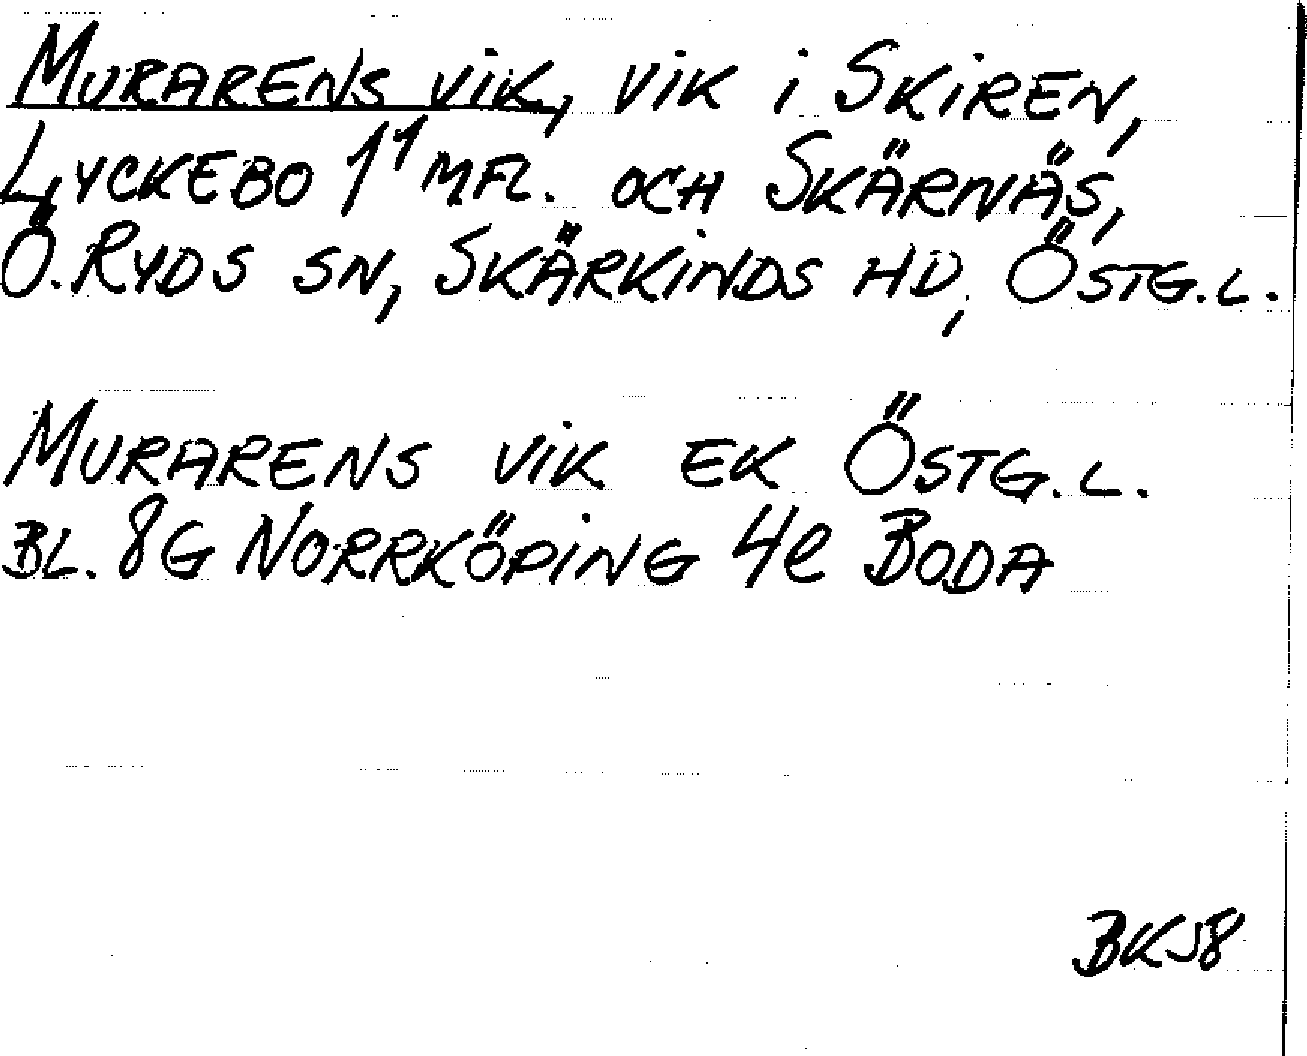 MURARENS VIK, VIK i SKIREN,
LYCKEBO 1¹ MFL. OCH SKÄRNÄS,
Ö. RYDS SN, SKÄRKINDS HD, ÖSTG.L.
MURARENS VIK EK ÖSTG.L.
BL. 8G NORRKÖPING 4e BODA
BKJ8